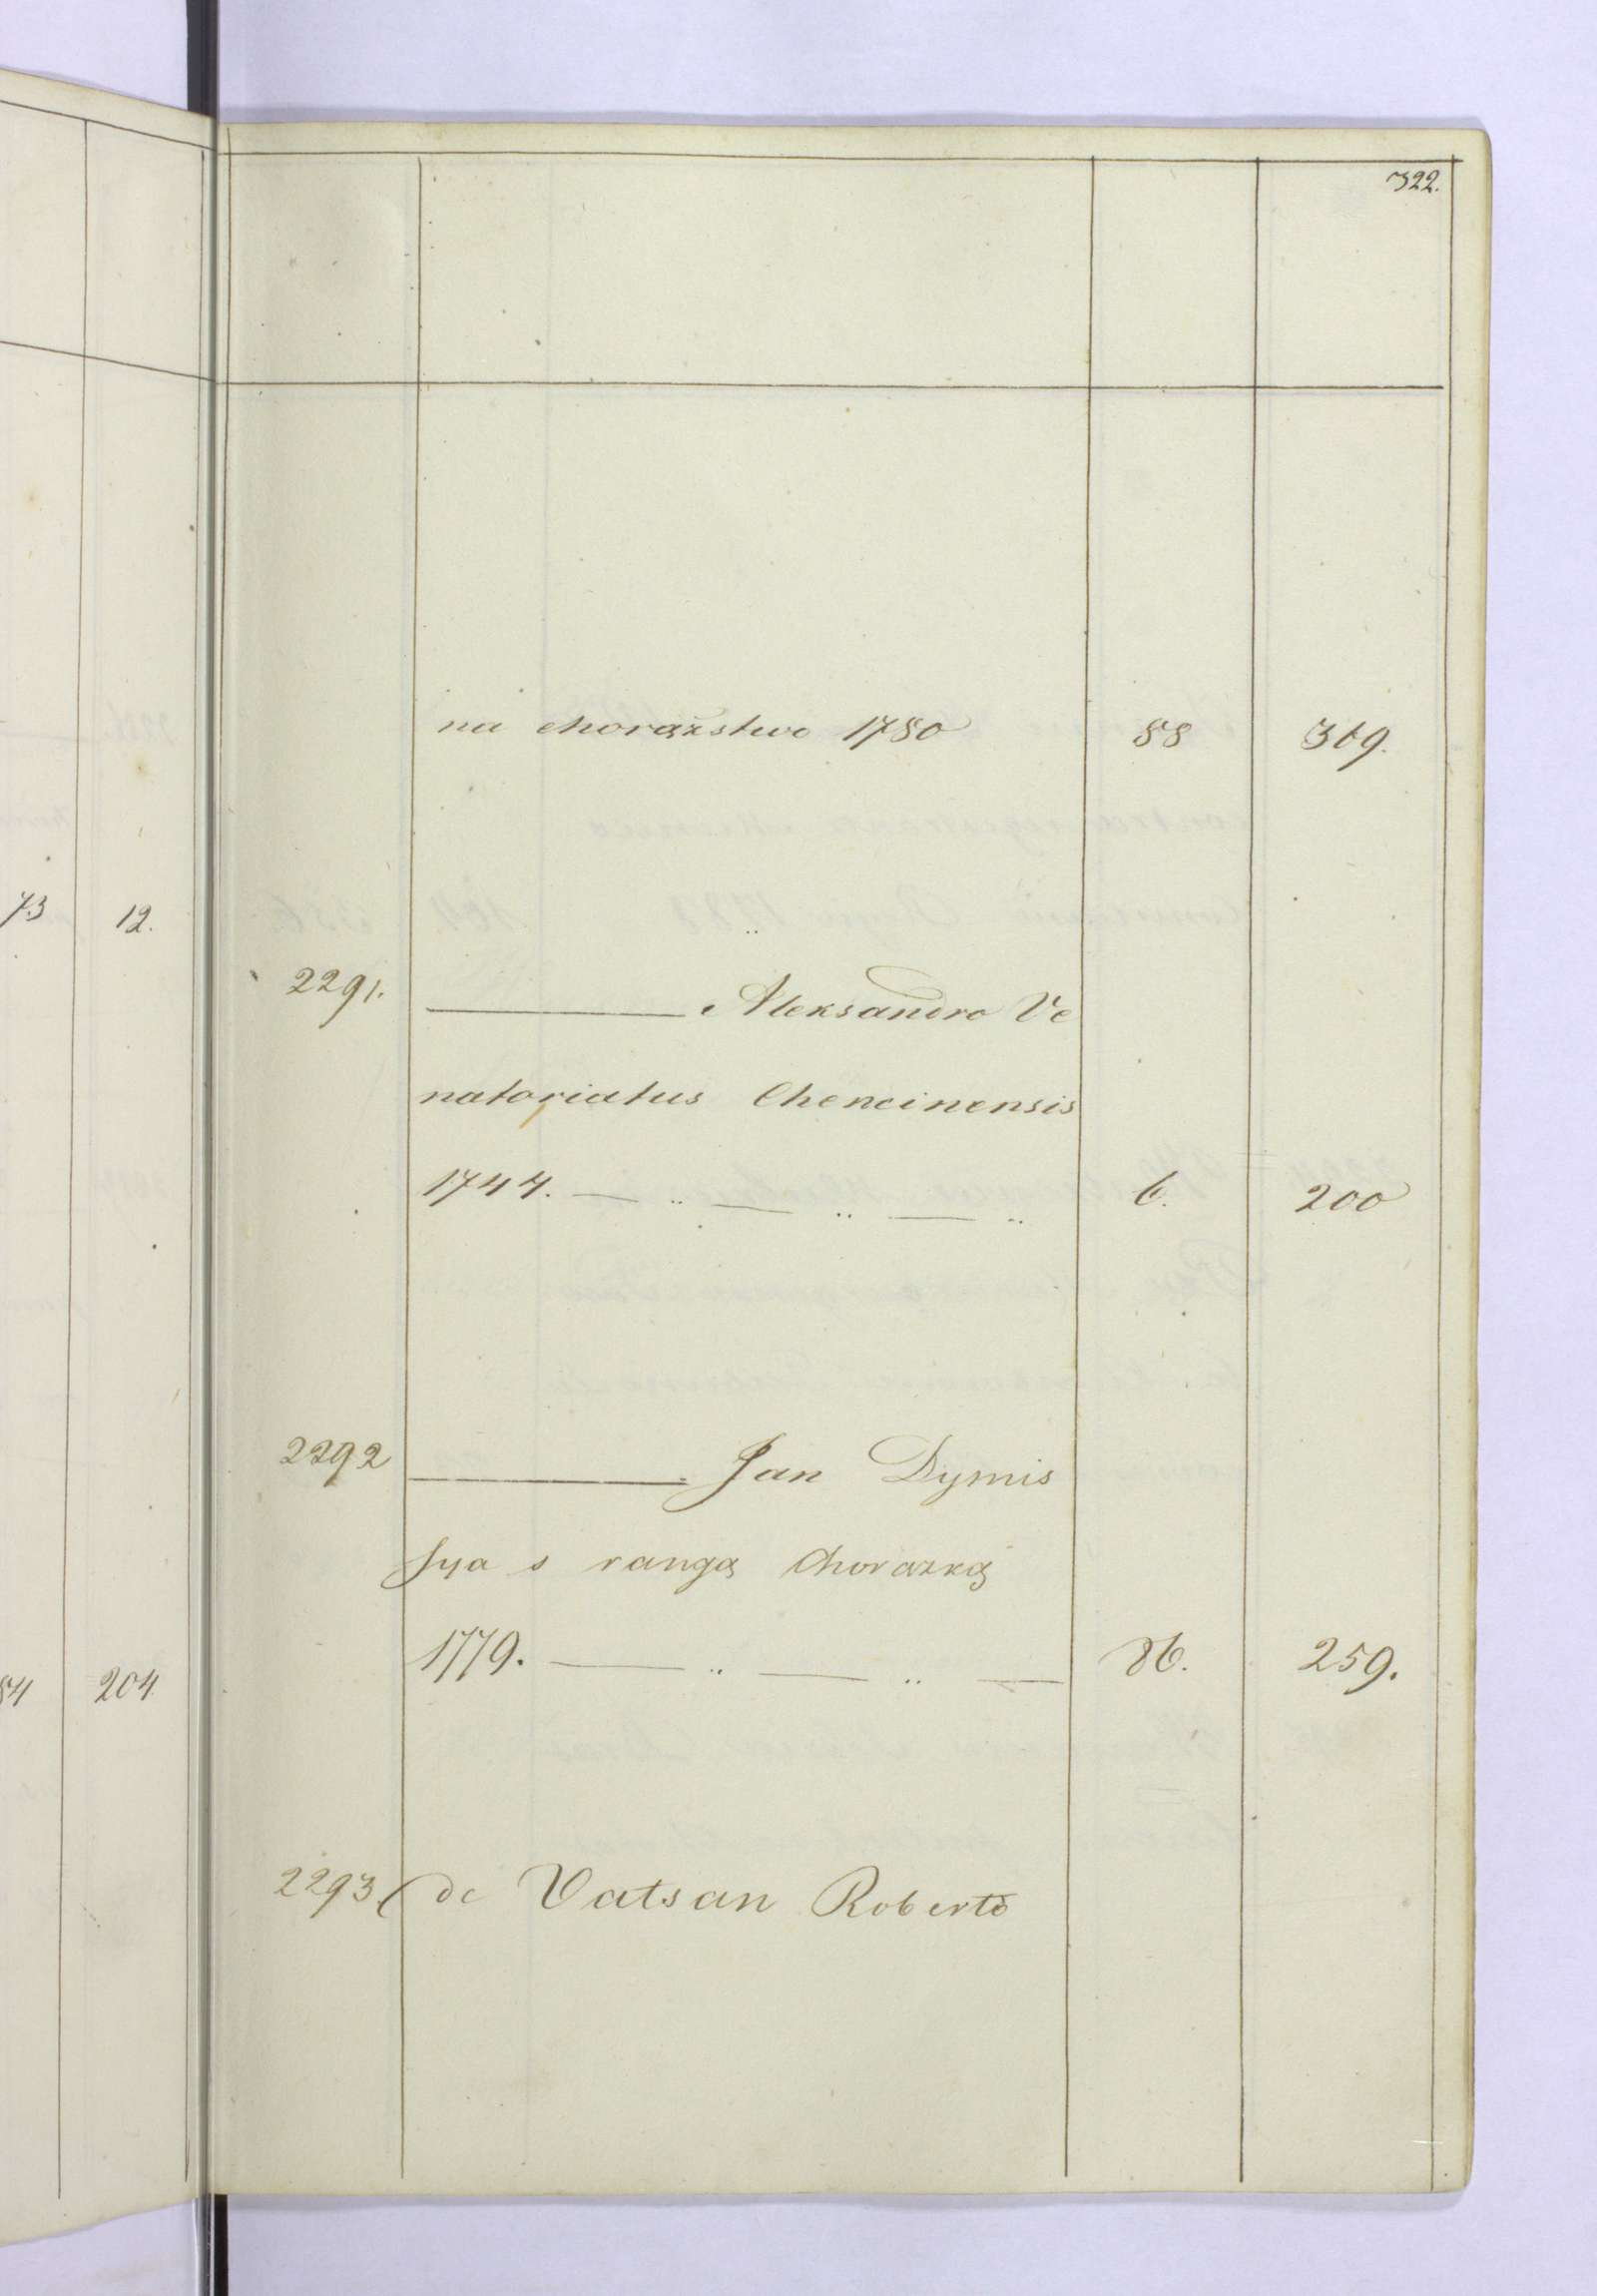 322.
na chorązstwo 1780 88 369.
73 12.
2291. ——— Aleksandro Ve
natoriatus Chencinensis
1744. — .. — .. — .. 6. 200
2292 ——— Jan Dymis
sya s rangą Chorązką
1779. — .. — .. — 86. 259.
84 204
2293 de Vatsan Roberto